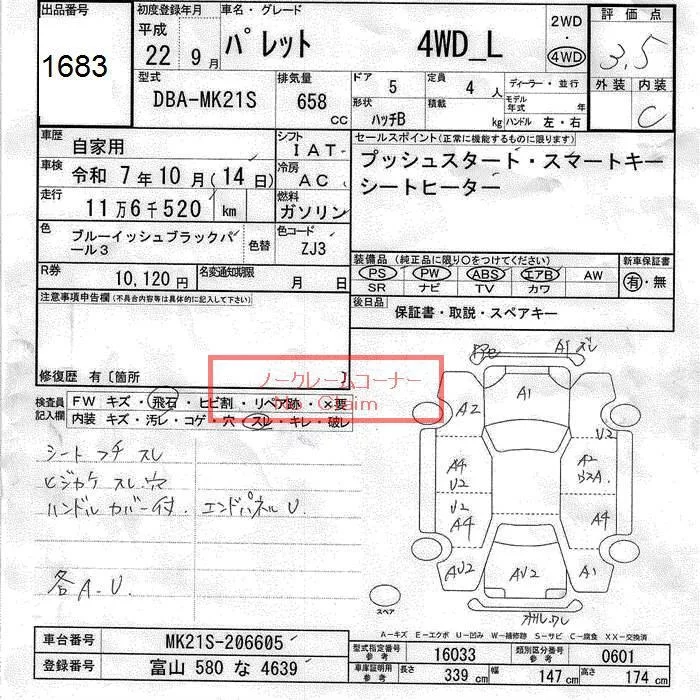 出品番号
1683
初度登録年月
平成
22年9月
車名・グレード
パレット 4WD_L
2WD
・
4WD
評価点
3.5
外装 内装
C
型式
DBA-MK21S
排気量
658 CC
ドア 5
定員 4人
ディーラー・並行
形状 ハッチB
積載 kg
モデル年式 年
ハンドル 左・右
車歴 自家用
シフト IAT
車検 令和7年10月(14日)
冷房 AC
走行 11万6千520 km
燃料 ガソリン
色 ブルーイッシュブラックパール3
色替
色コード ZJ3
R券 10,120円
名変通知期限 月 日
セールスポイント(正常に機能するものに限ります)
プッシュスタート・スマートキー
シートヒーター
装備品(純正品に限り○をつけてください)
PS PW ABS エアB AW
SR ナビ TV カワ
新車保証書
有・無
後日品 保証書・取説・スペアキー
注意事項申告欄(不具合内容等は具体的に記入して下さい)
修復歴 有〔箇所 〕
ノークレームコーナー
No Claim
検査員記入欄
FW キズ・飛石・ヒビ割・リペア跡・×要
内装 キズ・汚レ・コゲ・穴・スレ・キレ・破レ
シート フチ スレ
ヒジカケ スレ.穴
ハンドル カバー付. エンドパネル U.
各 A.U.
A1 ズレ
A1
A2
U2
A4
U2
A2
U2
A4
A4
AU2
AU2
A1
スペア
A-キズ E-エクボ U-凹み W-補修跡 S-サビ C-腐食 XX-交換済
車台番号 MK21S-206605
登録番号 富山 580 な 4639
型式指定番号 参考 16033
類別区分番号 参考 0601
車庫証明用 参考 長さ 339 cm 幅 147 cm 高さ 174 cm